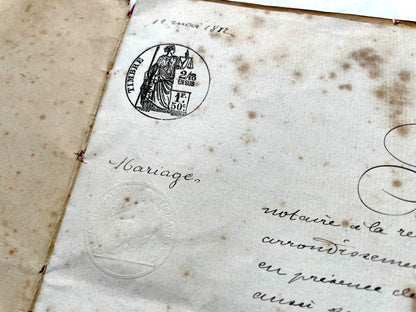 11 mai 1882
TIMBRE
2/10
EN SUS
1F.
50c
Mariage.
notaire à la re
arrondissemen
en présence de
aussi